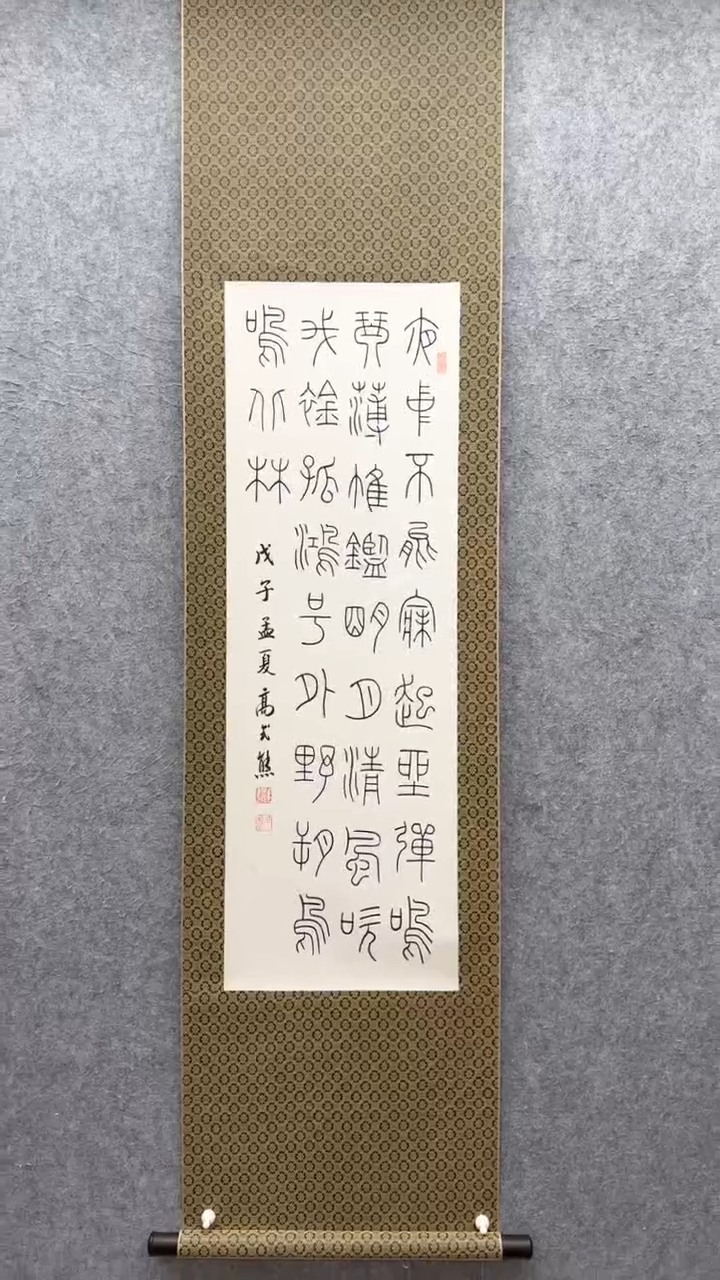 夜中不能寐起坐彈鳴
琴薄帷鑑明月清風吹
我襟孤鴻号外野朔鳥
鳴北林
戊子孟夏高式熊